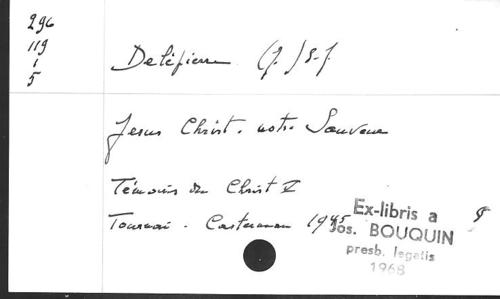 296
119
1
5
Delépierre (J.) S.J.
Jesus Christ. notre Sauveur
Témoins du Christ V
Tournai - Casterman 1945
Ex-libris a
Jos. BOUQUIN
presb. legatis
1968